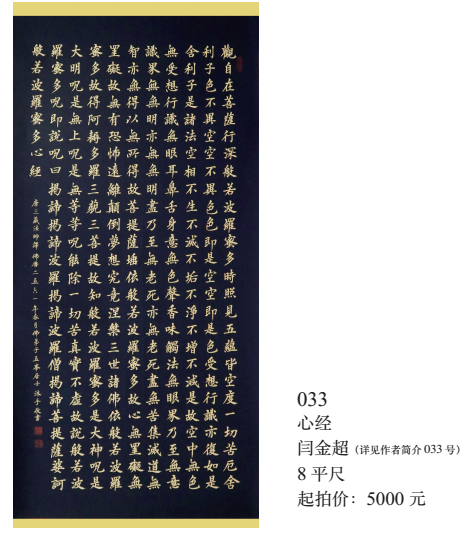 觀自在菩薩行深般若波羅蜜多時照見五蘊皆空度一切苦厄舍
利子色不異空空不異色色即是空空即是色受想行識亦復如是
舍利子是諸法空相不生不滅不垢不淨不增不減是故空中無色
無受想行識無眼耳鼻舌身意無色聲香味觸法無眼界乃至無意
識界無無明亦無無明盡乃至無老死亦無老死盡無苦集滅道無
智亦無得以無所得故菩提薩埵依般若波羅蜜多故心無罣礙無
罣礙故無有恐怖遠離顛倒夢想究竟涅槃三世諸佛依般若波羅
蜜多故得阿耨多羅三藐三菩提故知般若波羅蜜多是大神呪是
大明呪是無上呪是無等等呪能除一切苦真實不虛故說般若波
羅蜜多呪即說呪曰揭諦揭諦波羅揭諦波羅僧揭諦菩提薩婆訶
般若波羅蜜多心經
唐三藏法師譯 佛曆二五六一年 月佛弟子五峯居士沐手敬書
033
心经
闫金超（详见作者简介 033 号）
8 平尺
起拍价：5000 元